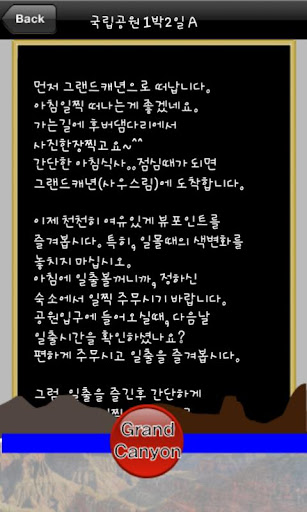 Back
국립공원 1박2일 A
먼저 그랜드캐년으로 떠납니다.
아침일찍 떠나는게 좋겠네요.
가는길에 후버댐다리에서
사진한장찍고요~^^
간단한 아침식사..점심때가 되면
그랜드캐년(사우스림)에 도착합니다.
이제 천천히 여유있게 뷰포인트를
즐겨봅시다. 특히, 일몰때의 색변화를
놓치지 마십시오.
아침에 일출볼꺼니까, 정하신
숙소에서 일찍 주무시기 바랍니다.
공원입구에 들어오실때, 다음날
일출시간을 확인하셨나요?
편하게 주무시고 일출을 즐겨봅시다.
그럼, 일출을 즐긴후 간단하게
Grand
Canyon